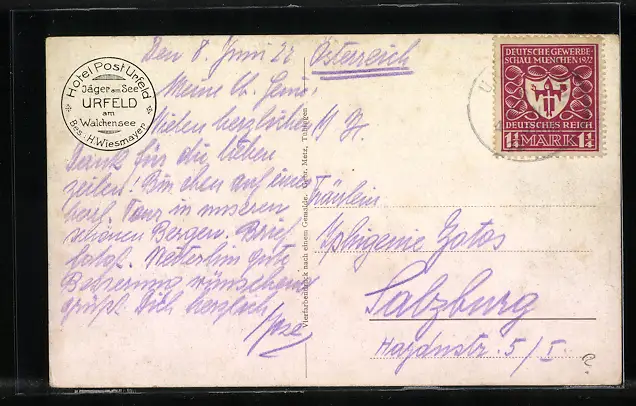 Hotel Post Urfeld
Jäger am See
URFELD
am
Walchensee
Bes. H. Wiesmayer
Den 8. Juni 22
Meine lb.
Vielen herzlichen
Dank für die lieben
Zeilen! Bin eben auf einer
herrl. Tour in unseren
schönen Bergen. Brief
folgt. Weiterhin gute
Besserung wünschend
grüßt Dich herzlich
Vierfarbendruck nach einem Gemälde. Gebr. Metz, Tübingen
Österreich
Fräulein
Iphigenie Zotos
Salzburg
Haydnstr. 5/I.
DEUTSCHE GEWERBE-
SCHAU MUENCHEN 1922
DEUTSCHES REICH
1¼ MARK 1¼